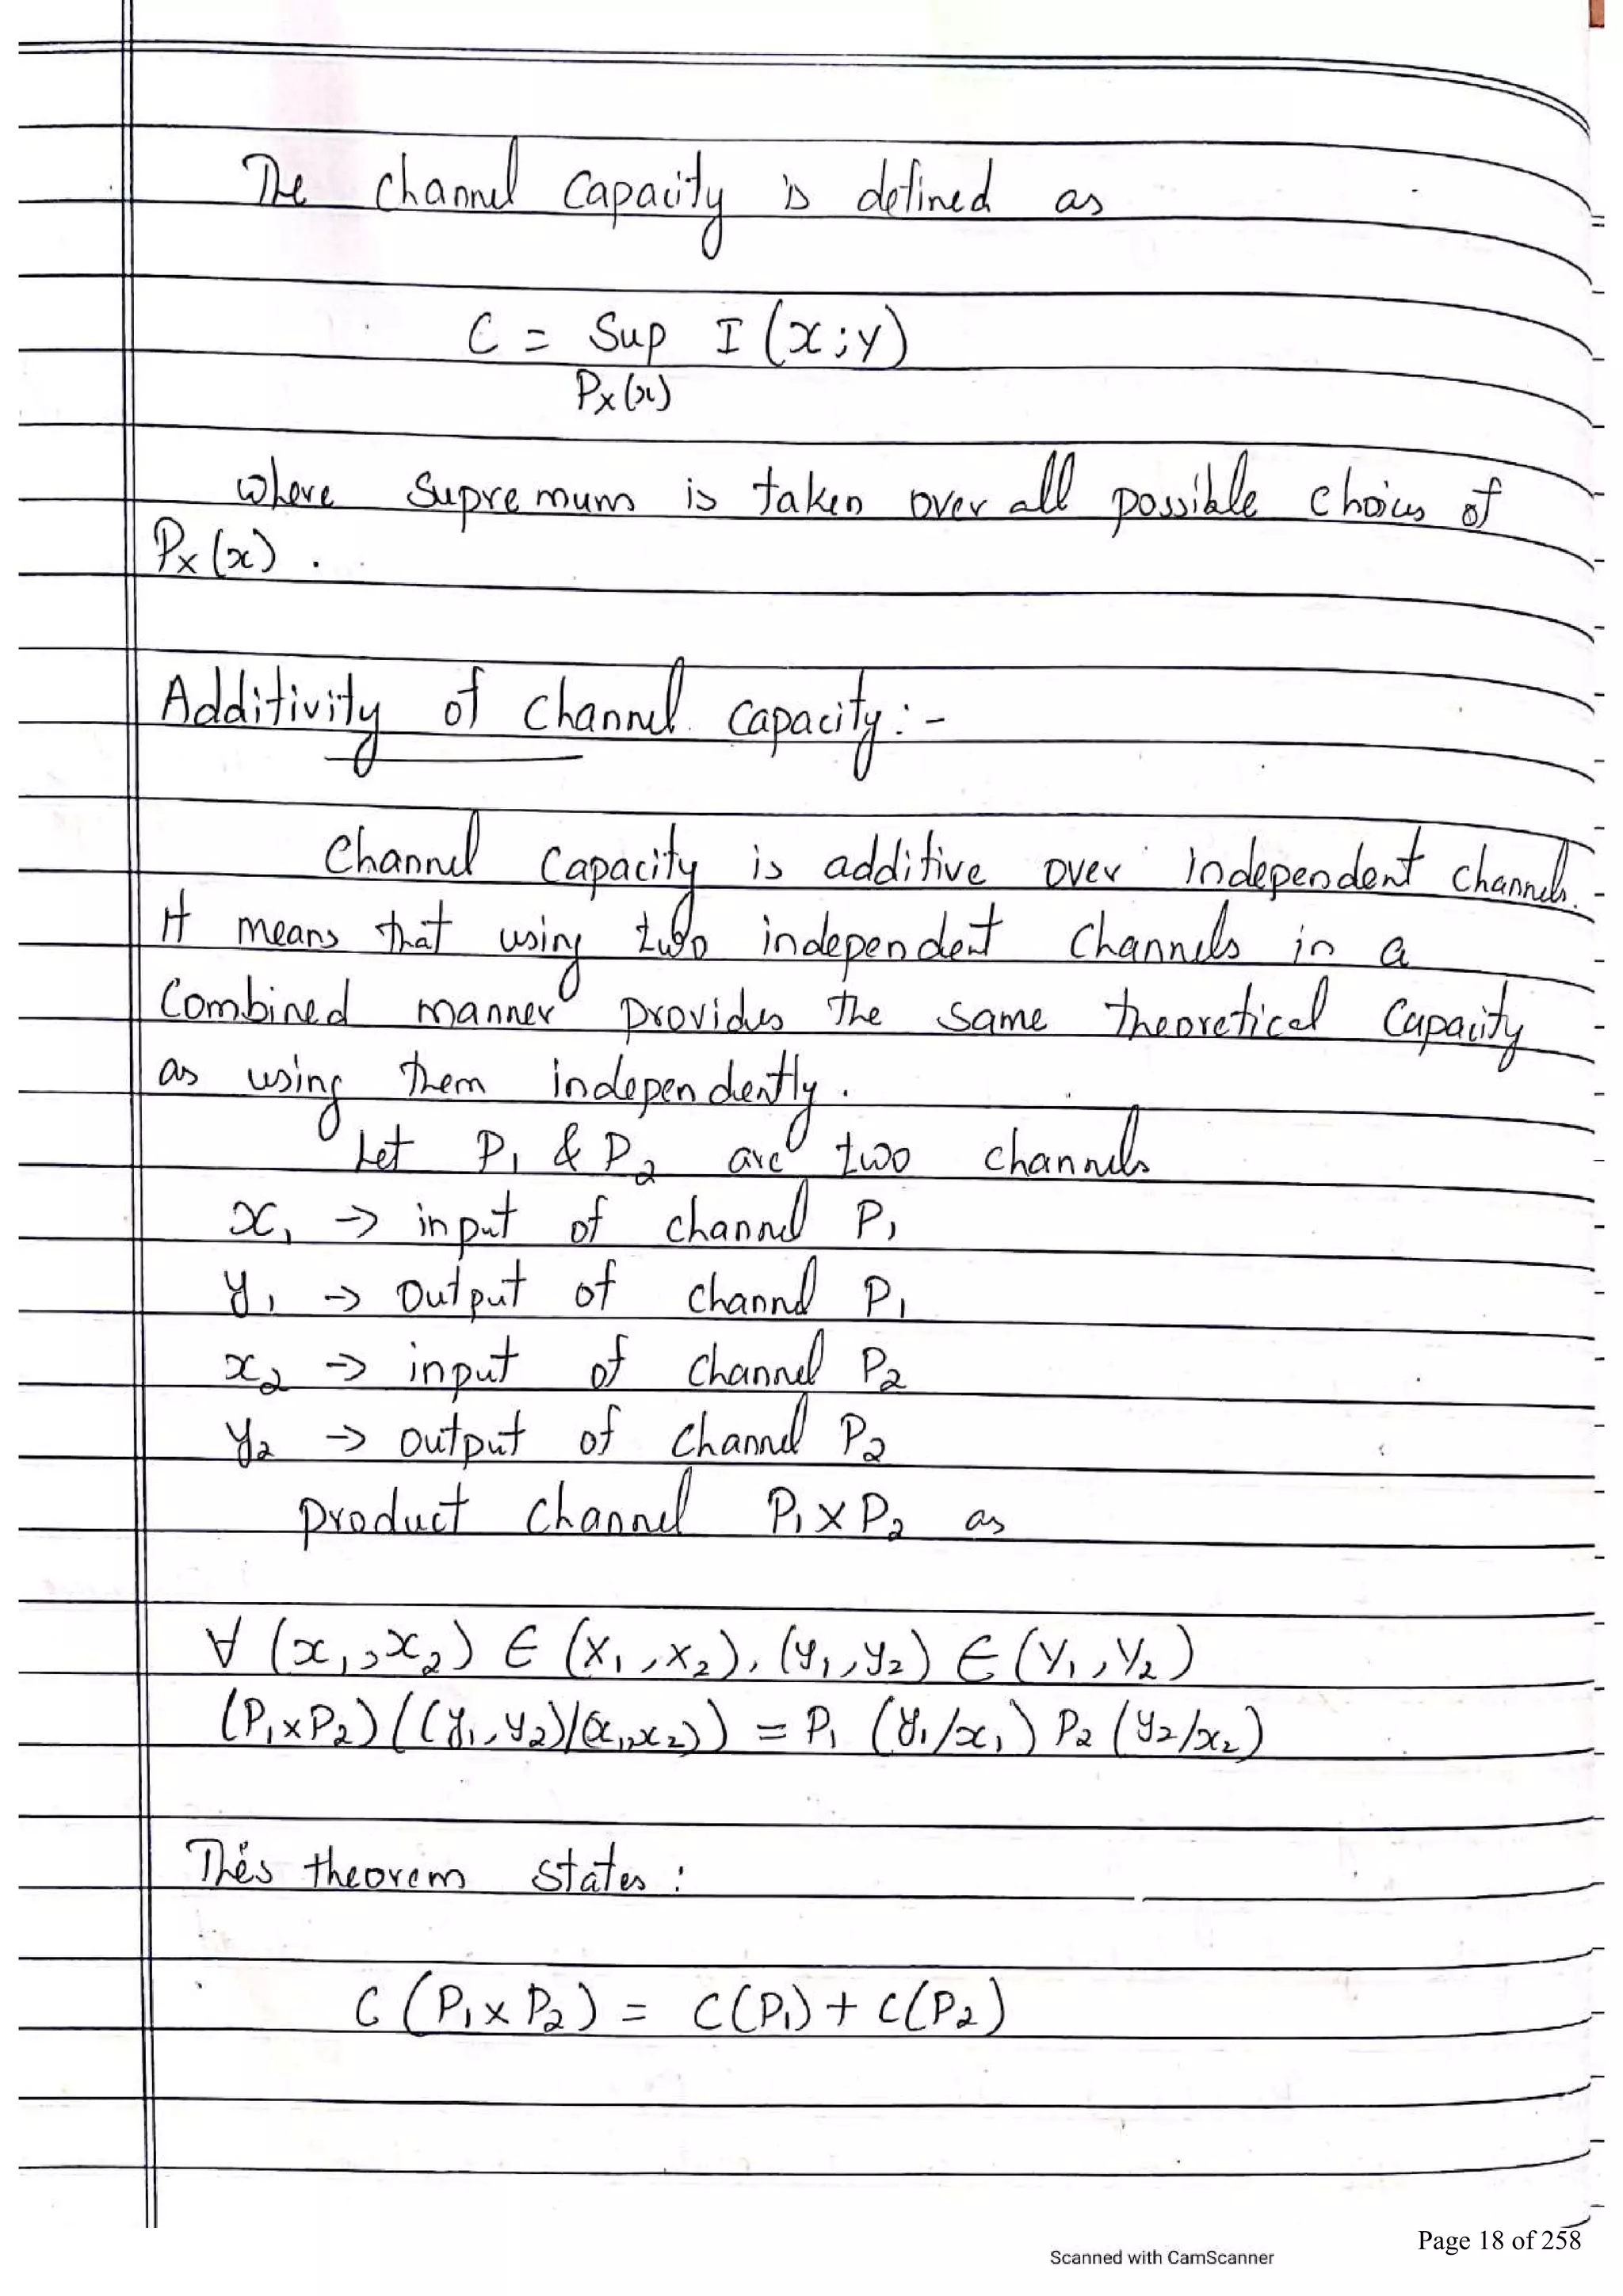 The channel capacity is defined as
C = Sup I (x;y)
Px(x)
where supremum is taken over all possible choices of
Px(x).
Additivity of channel capacity:-
Channel capacity is additive over independent channels.
It means that using two independent channels in a
combined manner provides the same theoretical capacity
as using them independently.
Let P1 & P2 are two channels
x1 → input of channel P1
y1 → output of channel P1
x2 → input of channel P2
y2 → output of channel P2
product channel P1 x P2 as
∀ (x1,x2) ∈ (X1,X2), (y1,y2) ∈ (Y1,Y2)
(P1×P2)((y1,y2)/(x1,x2)) = P1 (y1/x1) P2 (y2/x2)
This theorem states:
C (P1 x P2) = C(P1) + C(P2)
Page 18 of 258
Scanned with CamScanner